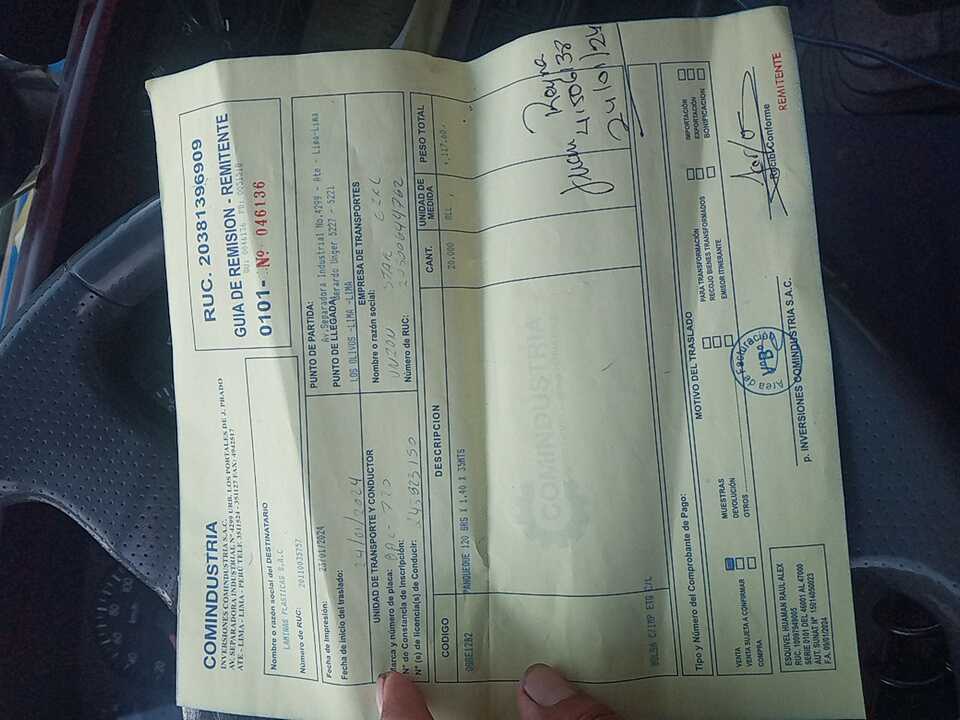 COMINDUSTRIA
INVERSIONES COMINDUSTRIA S.A.C.
AV. SEPARADORA INDUSTRIAL Nº 4299 URB. LOS PORTALES DE J. PRADO
ATE - LIMA - PERU TELE: 3511524 - 351127 FAX: 4942517
RUC. 20381396909
GUIA DE REMISION - REMITENTE
0101- Nº 046136
Nombre o razón social del DESTINATARIO
LAMINAS PLASTICAS S.A.C
Número de RUC: 20110035757
Fecha de Impresión: 23/01/2024
Fecha de inicio del traslado: 24/01/2024
PUNTO DE PARTIDA:
Av.Separadora Industrial No.4299 - Ate - Lima-Lima
PUNTO DE LLEGADA: Gerardo Unger 5227 - 5221
LOS OLIVOS -LIMA -LIMA
UNIDAD DE TRANSPORTE Y CONDUCTOR
Marca y número de placa:
Nº de Constancia de Inscripción:
Nº (s) de licencia(s) de Conducir:
EMPRESA DE TRANSPORTES
Nombre o razón social:
STAR
Número de RUC:
CODIGO DESCRIPCION CANT. UNIDAD DE MEDIDA PESO TOTAL
PANQUEQUE 120 GRS X 1.40 X 35MTS 20.000 RLL
BOLSA C/IMP ETQ C/L
Juan Reyna
41506138
24/01/24
Tipo y Número del Comprobante de Pago:
MOTIVO DEL TRASLADO
VENTA
VENTA SUJETA A CONFIRMAR
COMPRA
MUESTRAS
DEVOLUCIÓN
OTROS
PARA TRANSFORMACIÓN
RECOJO BIENES TRANSFORMADOS
EMISOR ITINERANTE
IMPORTACIÓN
EXPORTACIÓN
BONIFICACIÓN
ESQUIVEL HUAMAN RAUL ALEX
SERIE 0101 DEL 46001 AL 47000
F.A. 09/01/2024
Area de Facturación
VºBº
p. INVERSIONES COMINDUSTRIA S.A.C.
Recibí Conforme
REMITENTE